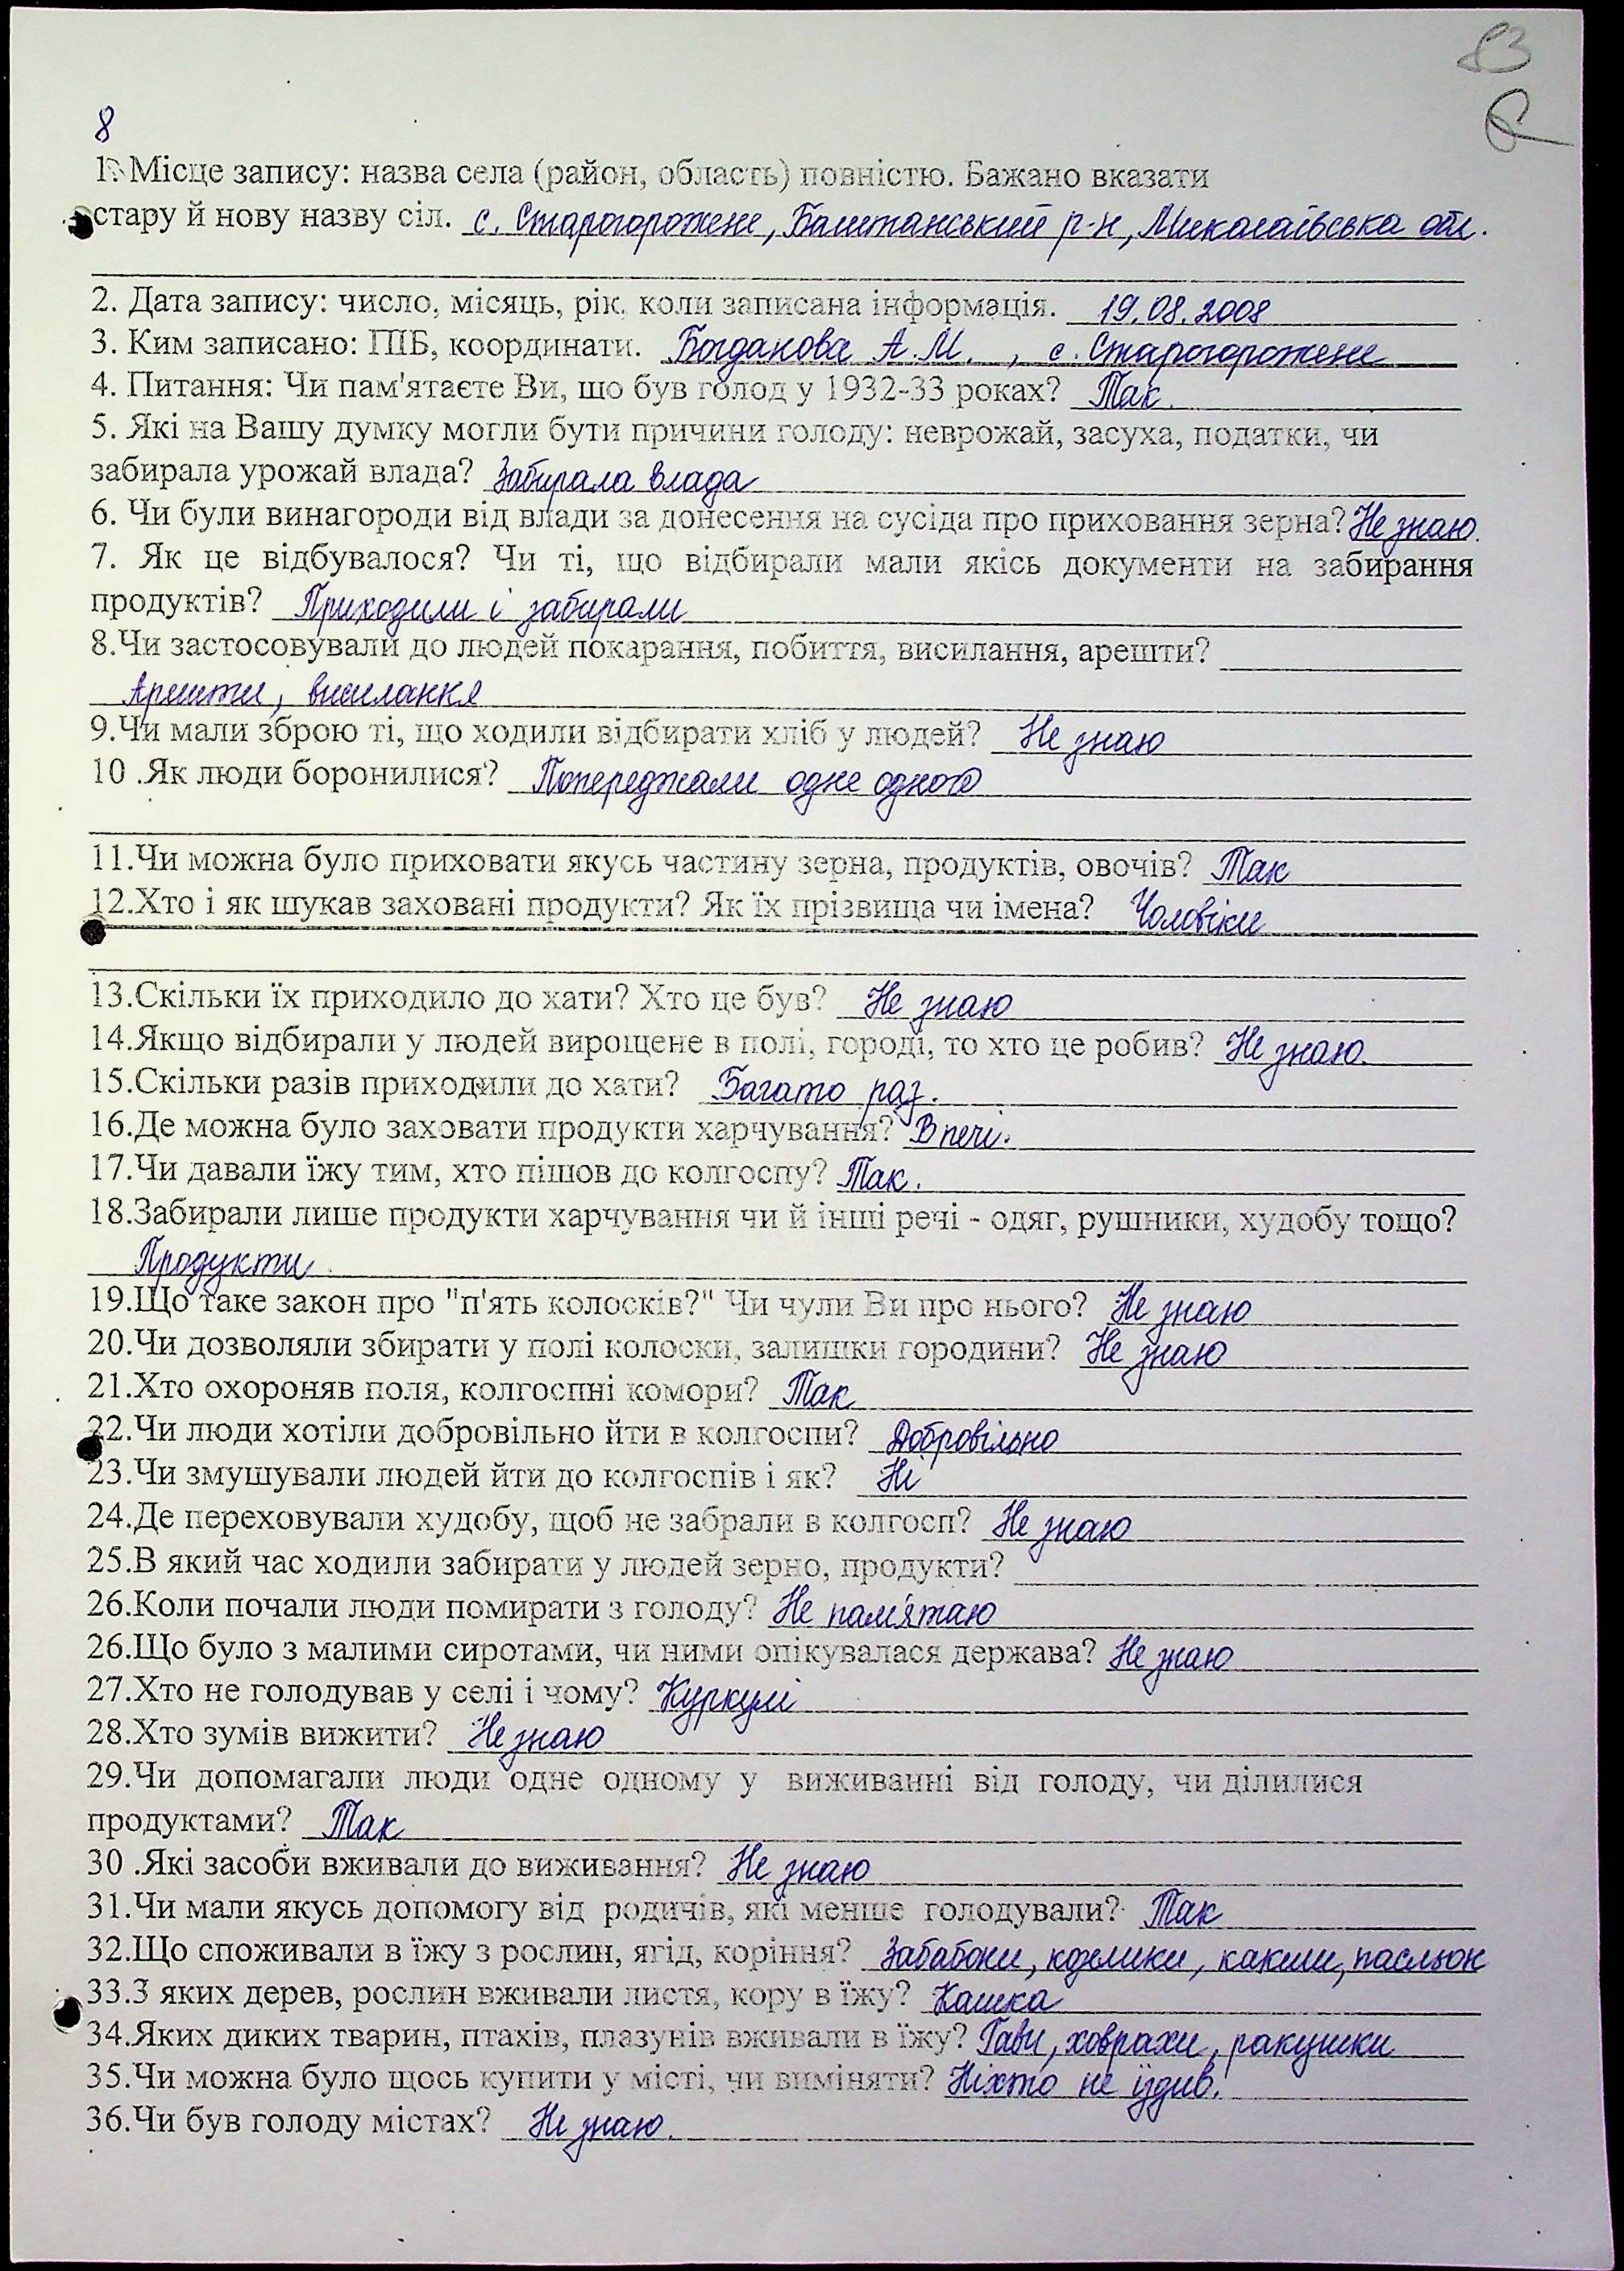 83
8
1. Місце запису: назва села (район, область) повністю. Бажано вказати
стару й нову назву сіл. с. Старогорожене, Баштанський р-н, Миколаївська обл.
2. Дата запису: число, місяць, рік, коли записана інформація. 19.08.2008
3. Ким записано: ПІБ, координати. Богданова А.М., с. Старогорожене
4. Питання: Чи пам'ятаєте Ви, що був голод у 1932-33 роках? Так.
5. Які на Вашу думку могли бути причини голоду: неврожай, засуха, податки, чи
забирала урожай влада? Забирала влада
6. Чи були винагороди від влади за донесення на сусіда про приховання зерна? Не знаю.
7. Як це відбувалося? Чи ті, що відбирали мали якісь документи на забирання
продуктів? Приходили і забирали
8.Чи застосовували до людей покарання, побиття, висилання, арешти?
Арешти, висилання
9.Чи мали зброю ті, що ходили відбирати хліб у людей? Не знаю
10 .Як люди боронилися? Попереджали одне одного
11.Чи можна було приховати якусь частину зерна, продуктів, овочів? Так
12.Хто і як шукав заховані продукти? Як їх прізвища чи імена? Чоловіки
13.Скільки їх приходило до хати? Хто це був? Не знаю
14.Якщо відбирали у людей вирощене в полі, городі, то хто це робив? Не знаю.
15.Скільки разів приходили до хати? Багато раз.
16.Де можна було заховати продукти харчування? В печі.
17.Чи давали їжу тим, хто пішов до колгоспу? Так.
18.Забирали лише продукти харчування чи й інші речі - одяг, рушники, худобу тощо?
Продукти.
19.Що таке закон про "п'ять колосків?" Чи чули Ви про нього? Не знаю
20.Чи дозволяли збирати у полі колоски, залишки городини? Не знаю
21.Хто охороняв поля, колгоспні комори? Так
22.Чи люди хотіли добровільно йти в колгоспи? Добровільно
23.Чи змушували людей йти до колгоспів і як? Ні
24.Де переховували худобу, щоб не забрали в колгосп? Не знаю
25.В який час ходили забирати у людей зерно, продукти?
26.Коли почали люди помирати з голоду? Не пам'ятаю
26.Що було з малими сиротами, чи ними опікувалася держава? Не знаю
27.Хто не голодував у селі і чому? Куркулі
28.Хто зумів вижити? Не знаю
29.Чи допомагали люди одне одному у виживанні від голоду, чи ділилися
продуктами? Так
30 .Які засоби вживали до виживання? Не знаю
31.Чи мали якусь допомогу від родичів, які менше голодували? Так
32.Що споживали в їжу з рослин, ягід, коріння? пасльон
33.З яких дерев, рослин вживали листя, кору в їжу? Кашка
34.Яких диких тварин, птахів, плазунів вживали в їжу? Гави, ховрахи, ракушки
35.Чи можна було щось купити у місті, чи виміняти? Ніхто не їздив.
36.Чи був голоду містах? Не знаю.